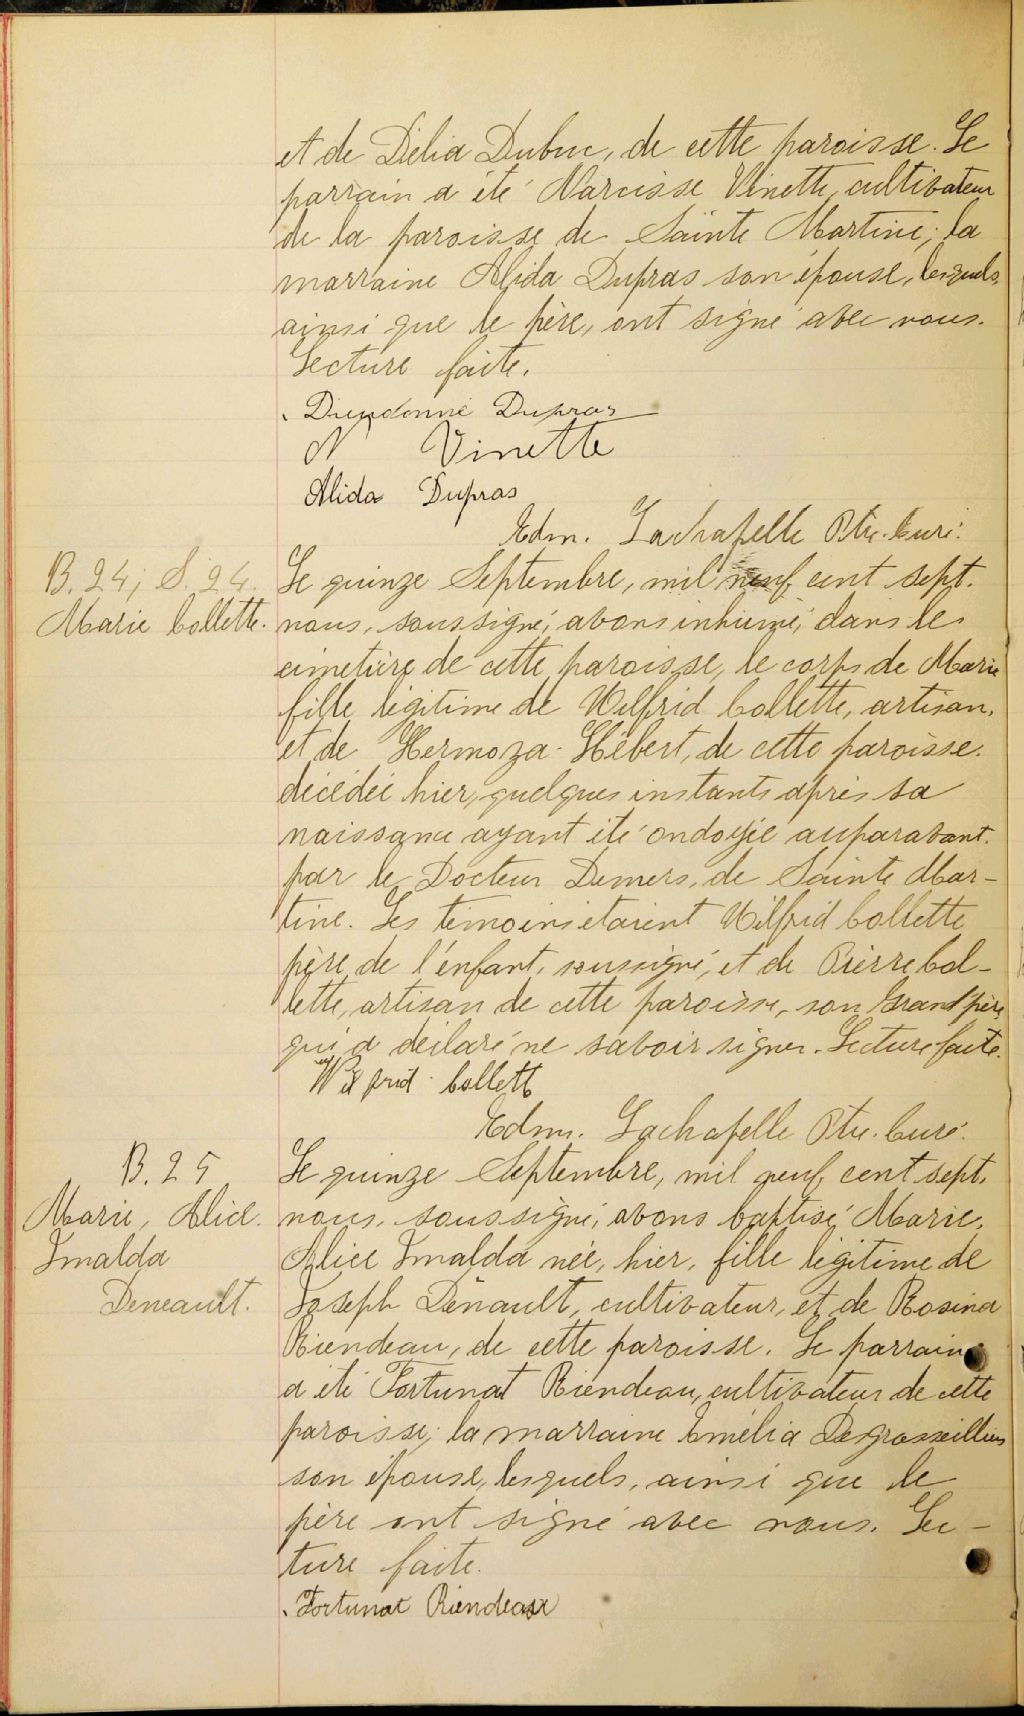 et de Délia Dubuc, de cette paroisse. Le
parrain a été Narcisse Vinette, cultivateur
de la paroisse de Sainte Martine; la
marraine Alida Dupras son épouse, lesquels,
ainsi que le père, ont signé avec nous.
Lecture faite.
Dieudonné Dupras
N Vinette
Alida Dupras
Edm. Lachapelle Ptre. Curé.
B. 24; S. 24.
Marie Collette.
Le quinze Septembre, mil neuf cent sept.
nous, soussigné, avons inhumé, dans le
cimetière de cette paroisse, le corps de Marie
fille légitime de Wilfrid Collette, artisan,
et de Hermoza Hébert, de cette paroisse.
décédée hier, quelques instants après sa
naissance ayant été ondoyée auparavant.
par le Docteur Demers, de Sainte Mar-
tine. Les témoins étaient Wilfrid Collette
père de l'enfant, soussigné, et de Pierre Col-
lette, artisan de cette paroisse, son Grand père,
qui a déclaré ne savoir signer. Lecture faite.
Wilfrid Collett
Edm. Lachapelle Ptre. Curé.
B. 25
Marie, Alice.
Imalda
Deneault.
Le quinze Septembre, mil neuf cent sept.
nous, soussigné, avons baptisé Marie,
Alice Imalda née, hier, fille légitime de
Joseph Dénault, cultivateur, et de Rosina
Riendeau, de cette paroisse. Le parrain
a été Fortunat Riendeau, cultivateur de cette
paroisse; la marraine Emélia Desgrosseilliers
son épouse, lesquels, ainsi que le
père ont signé avec nous. Lec-
ture faite.
Fortunat Riendeau